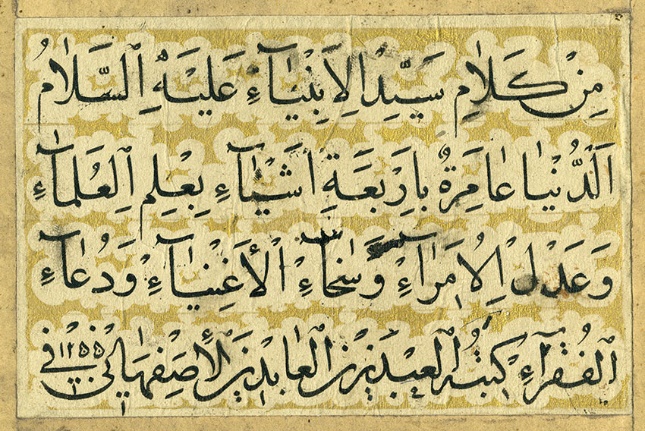 مِنْ كَلَامِ سَيِّدِ الْاَنْبِيَآءِ عَلَيْهِ السَّلَامُ
اَلدُّنْيَا عَامِرَةٌ بِاَرْبَعَةِ اَشْيَآءِ بِعِلْمِ الْعُلَمَآءِ
وَعَدْلِ الْاُمَرَآءِ وَسَخَآءِ الْأَغْنِيَآءِ وَدُعَآءِ
الْفُقَرَآءِ كتبه العبد زين العابدين الأصفهاني في ١٢٥٥